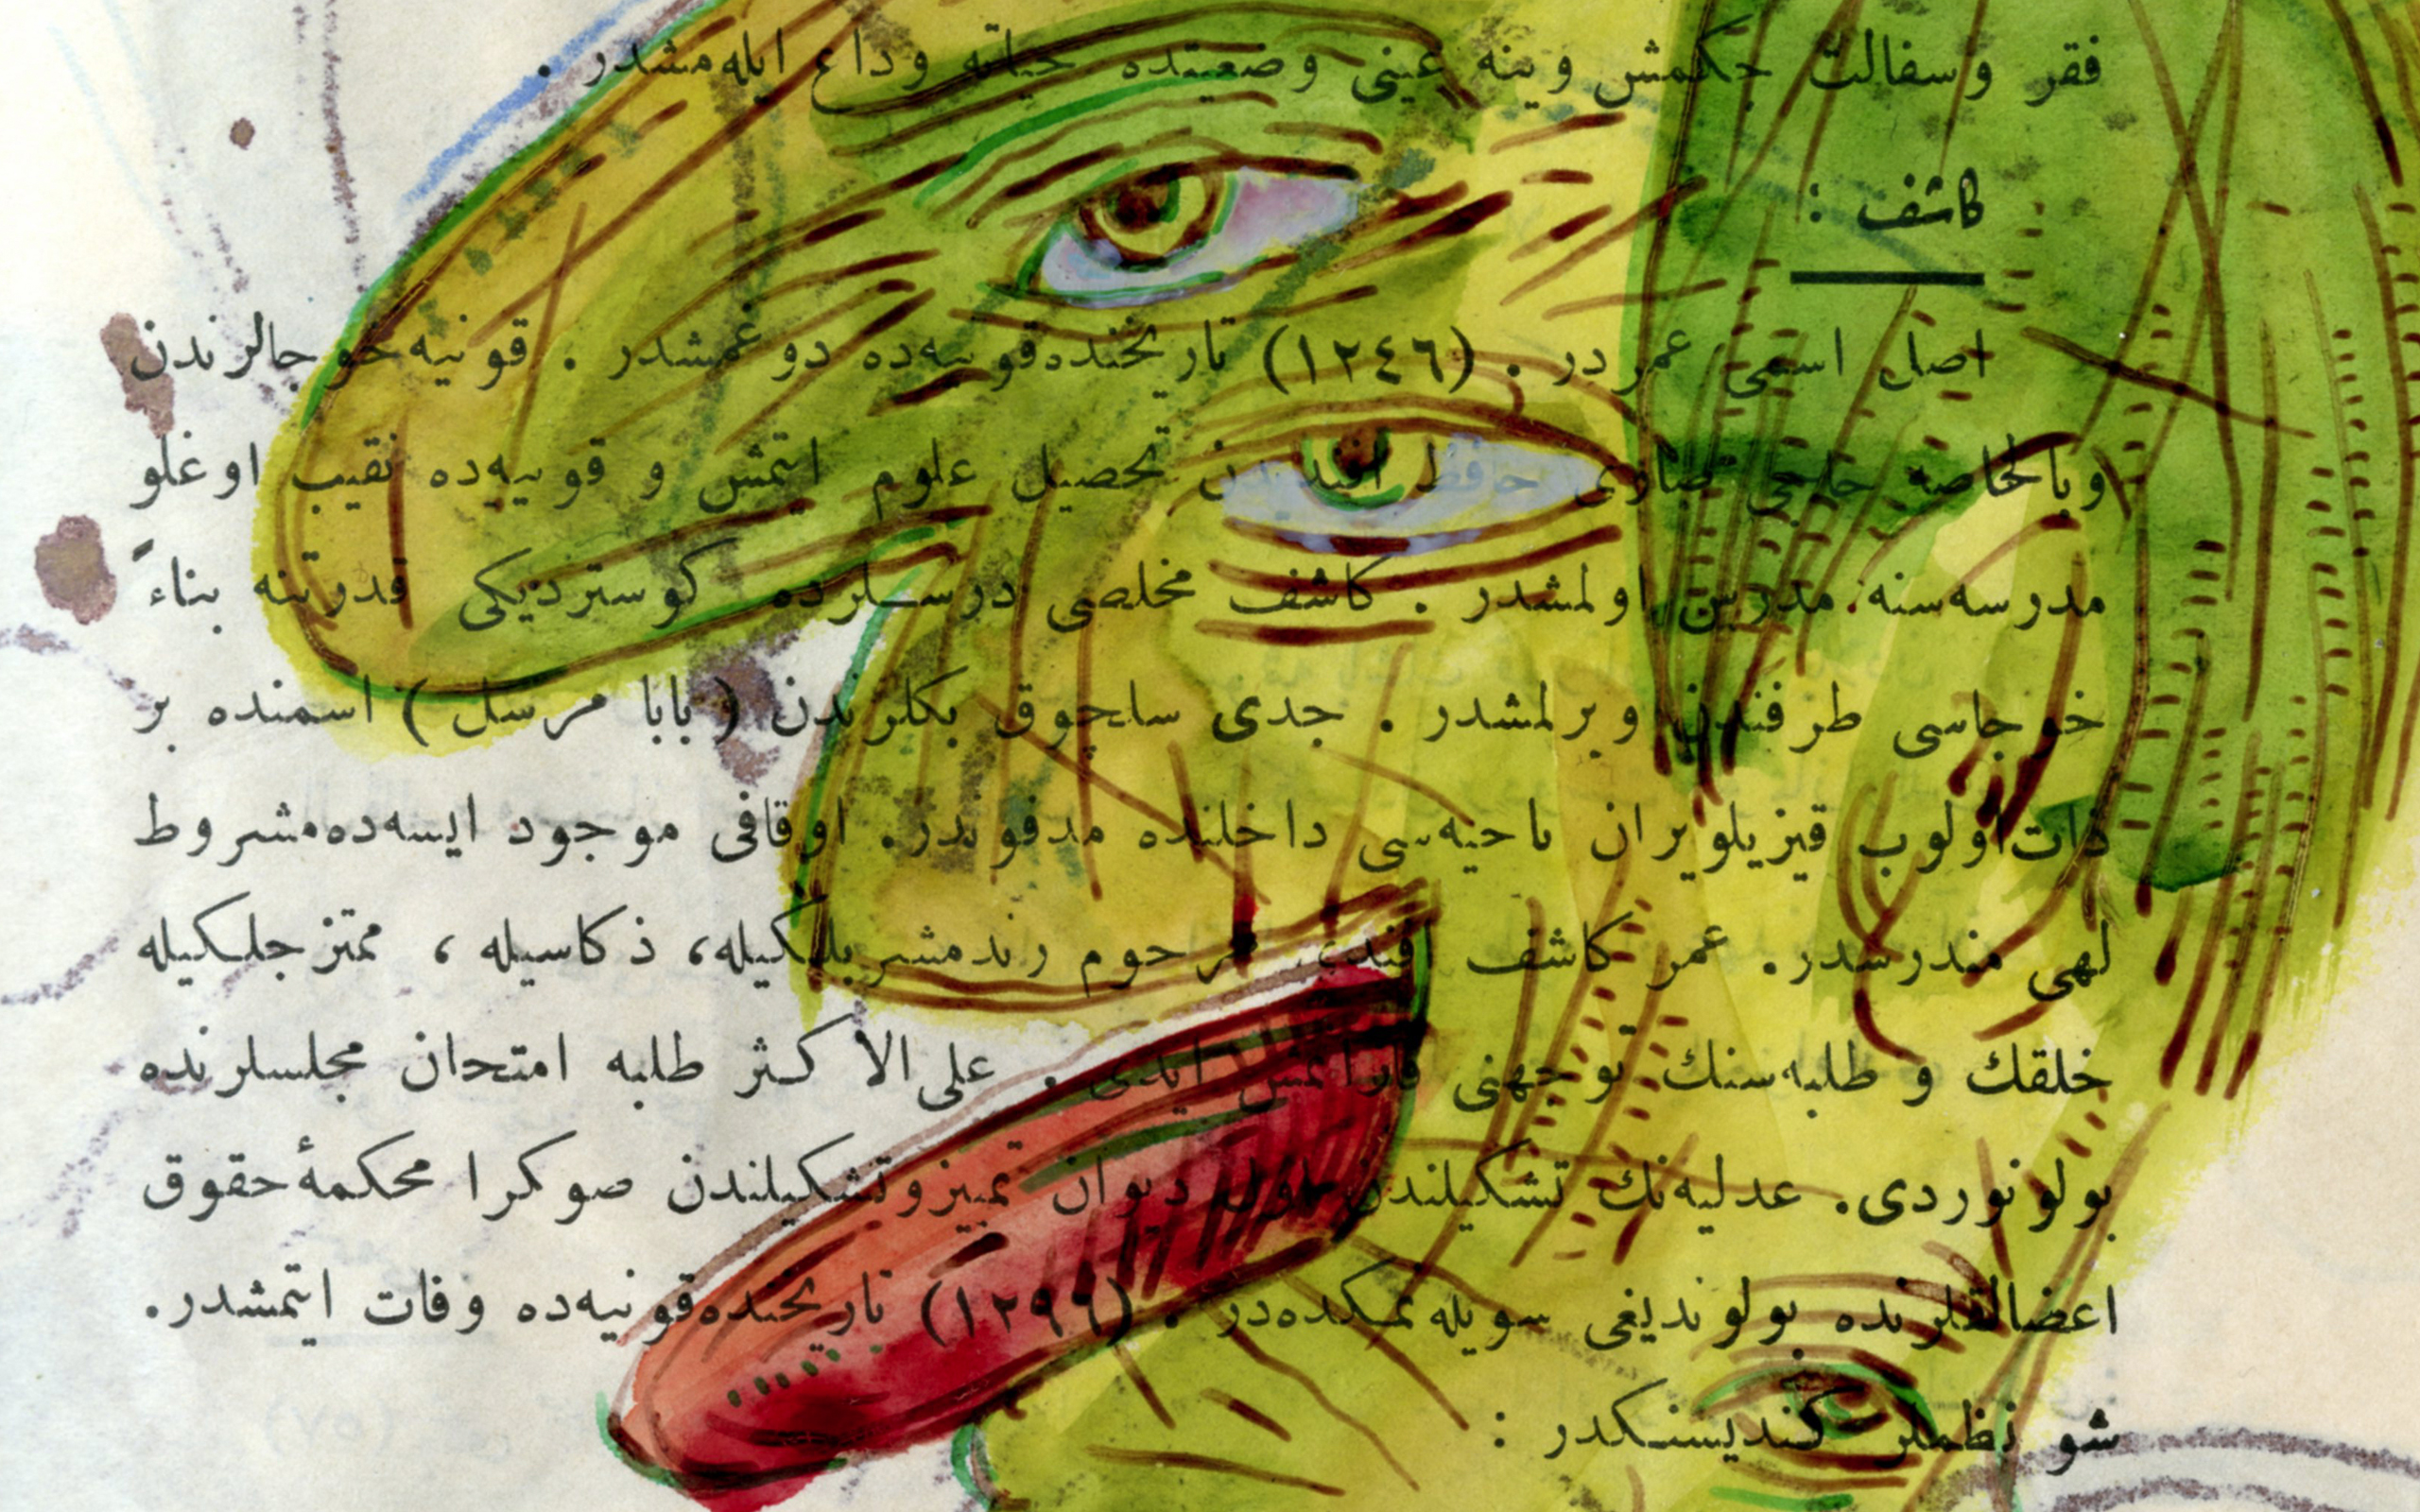 فقر وسفالت چكمش وينه عينى وضعيتده حياته وداع ايله‌مشدر .
كاشف :
اصل اسمى عمردر . (١٢٤٦) تاريخنده‌قونيه‌ده دوغمشدر . قونيه‌خوجالرندن
وبالخاصه حاجى حافظ افنديدن تحصيل علوم ايتمش و قونيه‌ده نقيب اوغلو
مدرسه‌سنه مدرس اولمشدر . كاشف مخلصى درسلرده كوسترديكى قدرتنه بناءً
خوجاسى طرفندن ويرلمشدر . جدى سلچوق بكلرندن ( بابا مرسل ) اسمنده بر
ذات‌اولوب قيزيلويران ناحيه‌سى داخلنده مدفوندر. اوقافى موجود ايسه‌ده‌مشروط
لهى مندرسدر. عمر كاشف افندى مرحوم رندمشربلكيله، ذكاسيله ، ممتزجلكيله
خلقك و طلبه‌سنك توجهنى قازانمش ايدى . على‌الاكثر طلبه امتحان مجلسلرنده
بولونوردى. عدليه‌نك تشكيلندن اول ديوان تمييزوتشكيلندن صوكرا محكمهٔ‌حقوق
اعضالقلرنده بولونديغى سويله‌نمكده‌در . (١٢٩٩) تاريخنده‌قونيه‌ده وفات ايتمشدر.
شو نظملر كنديسنكدر :